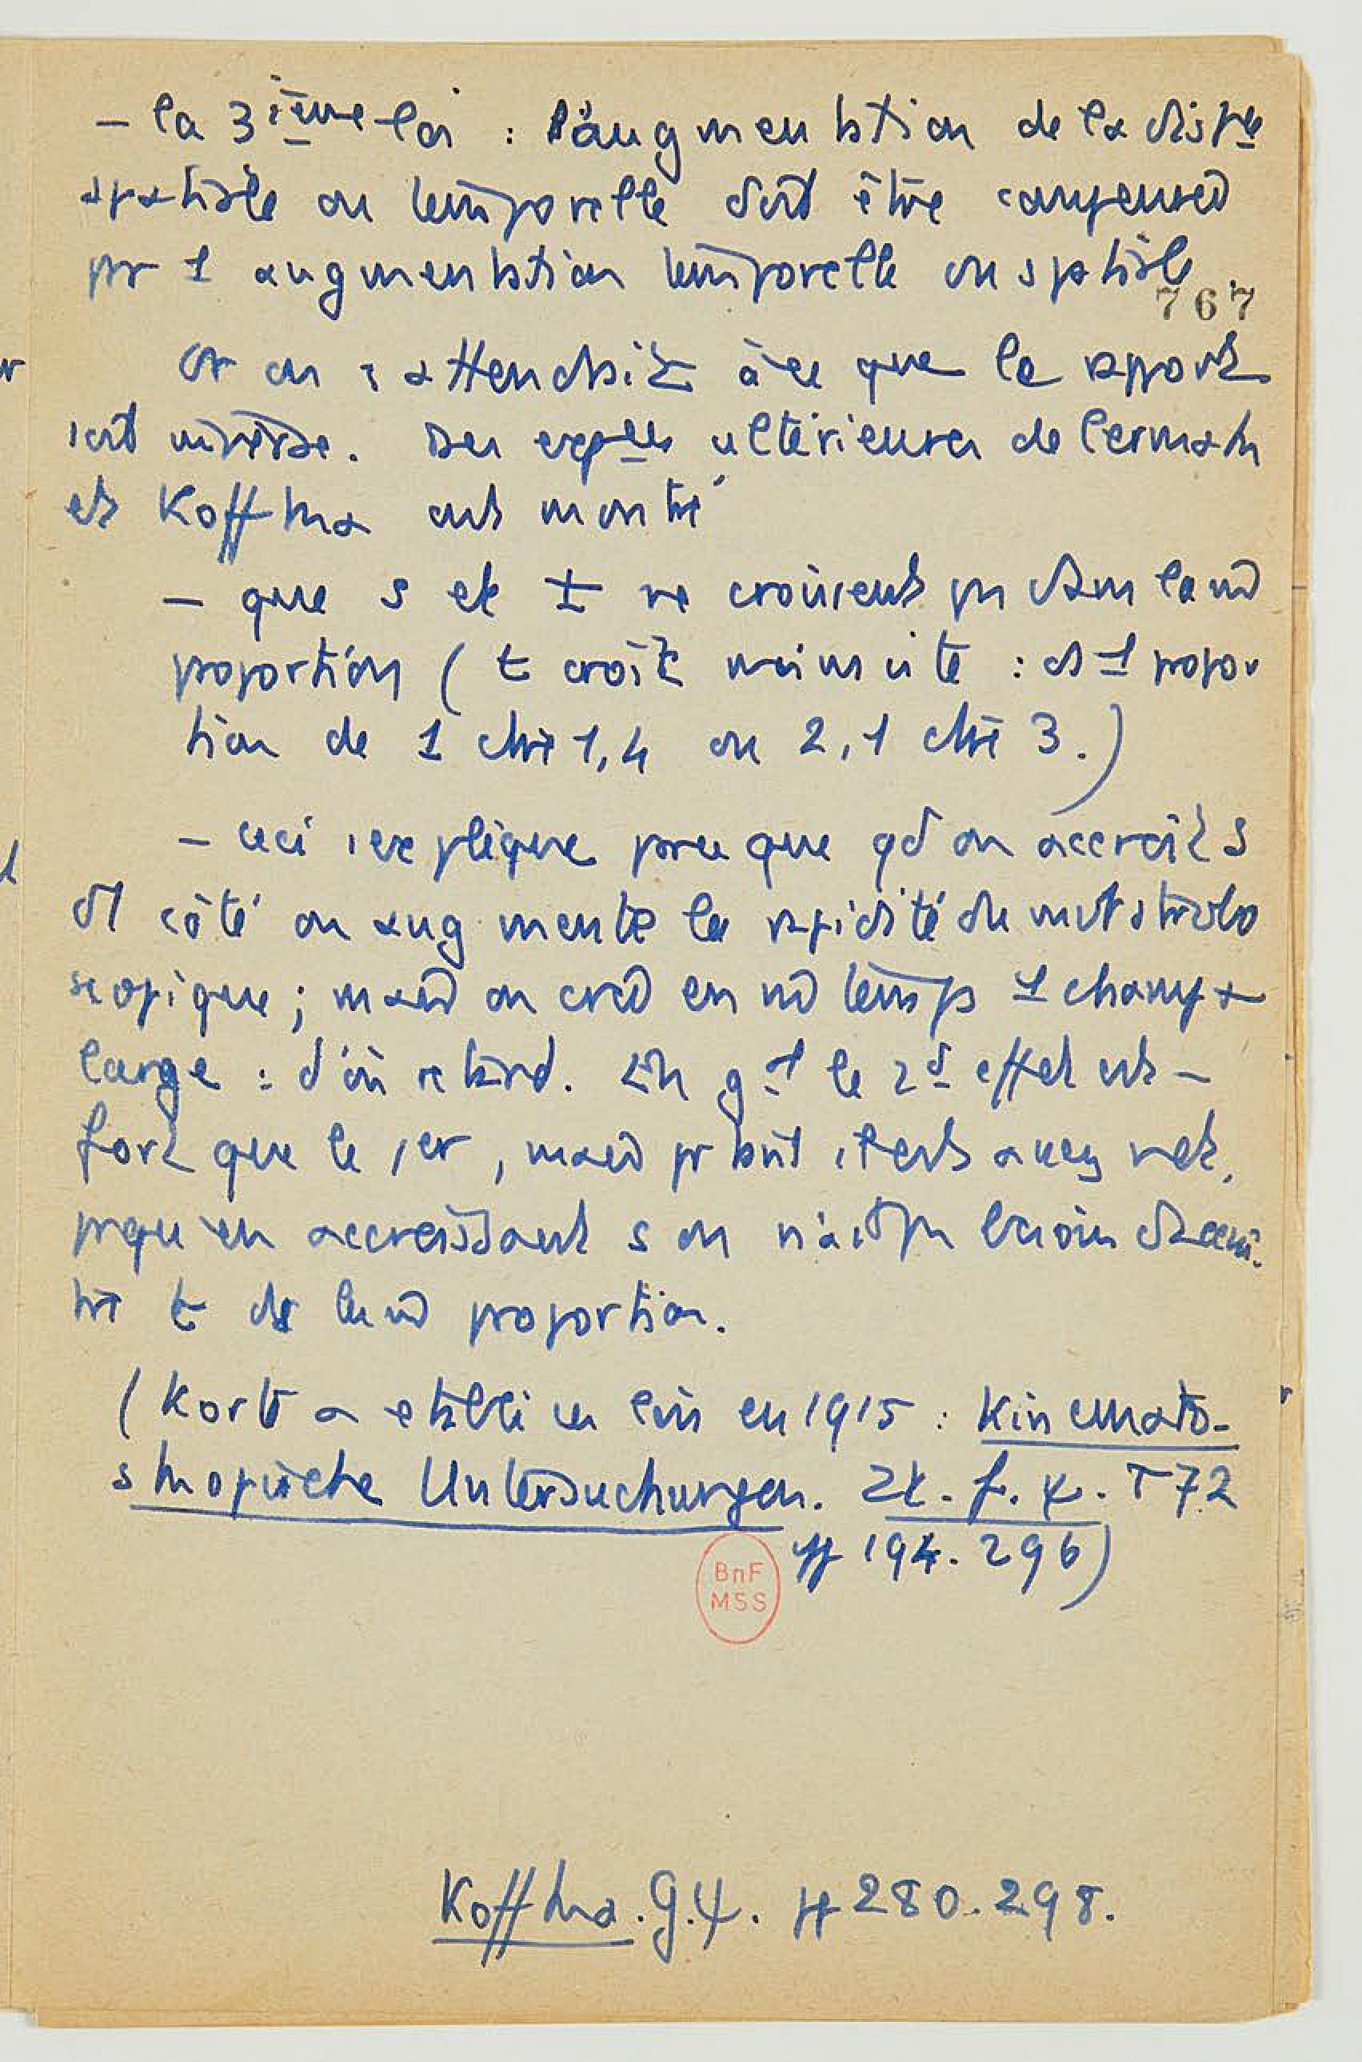 – la 3ième loi : l'augmentation de la dist^ce
spatiale ou temporelle doit être compensée
pr 1 augmentation temporelle ou spatiale.
767
Or on s'attendrait à ce que le rapport
soit inverse. Des exp^ces ultérieures de Cermak
et Koffka ont montré
– que s et t ne croissent pas dans la m̂
proportion ( t croît moins vite : ds 1 propor
tion de 1 à 1,4 ou 2,1 3.)
– ceci s'explique parce que qd on accroît s
d'1 côté on augmente la rapidité du mvt strobo
scopique ; mais on crée en m̂ temps 1 champ +
large : d'où retard. En g^al le 2d effet est –
fort que le 1er, mais pr tant il est assez net,
psqu'en accroissant s on n'a pas besoin
t ds la m̂ proportion.
( Korte a établi ces lois en 1915 : Kinemato-
skopische Untersuchungen. Zt. f. ψ. T 72
pp 194. 296)
BnF
MSS
Koffka. G.ψ. pp 280. 298.